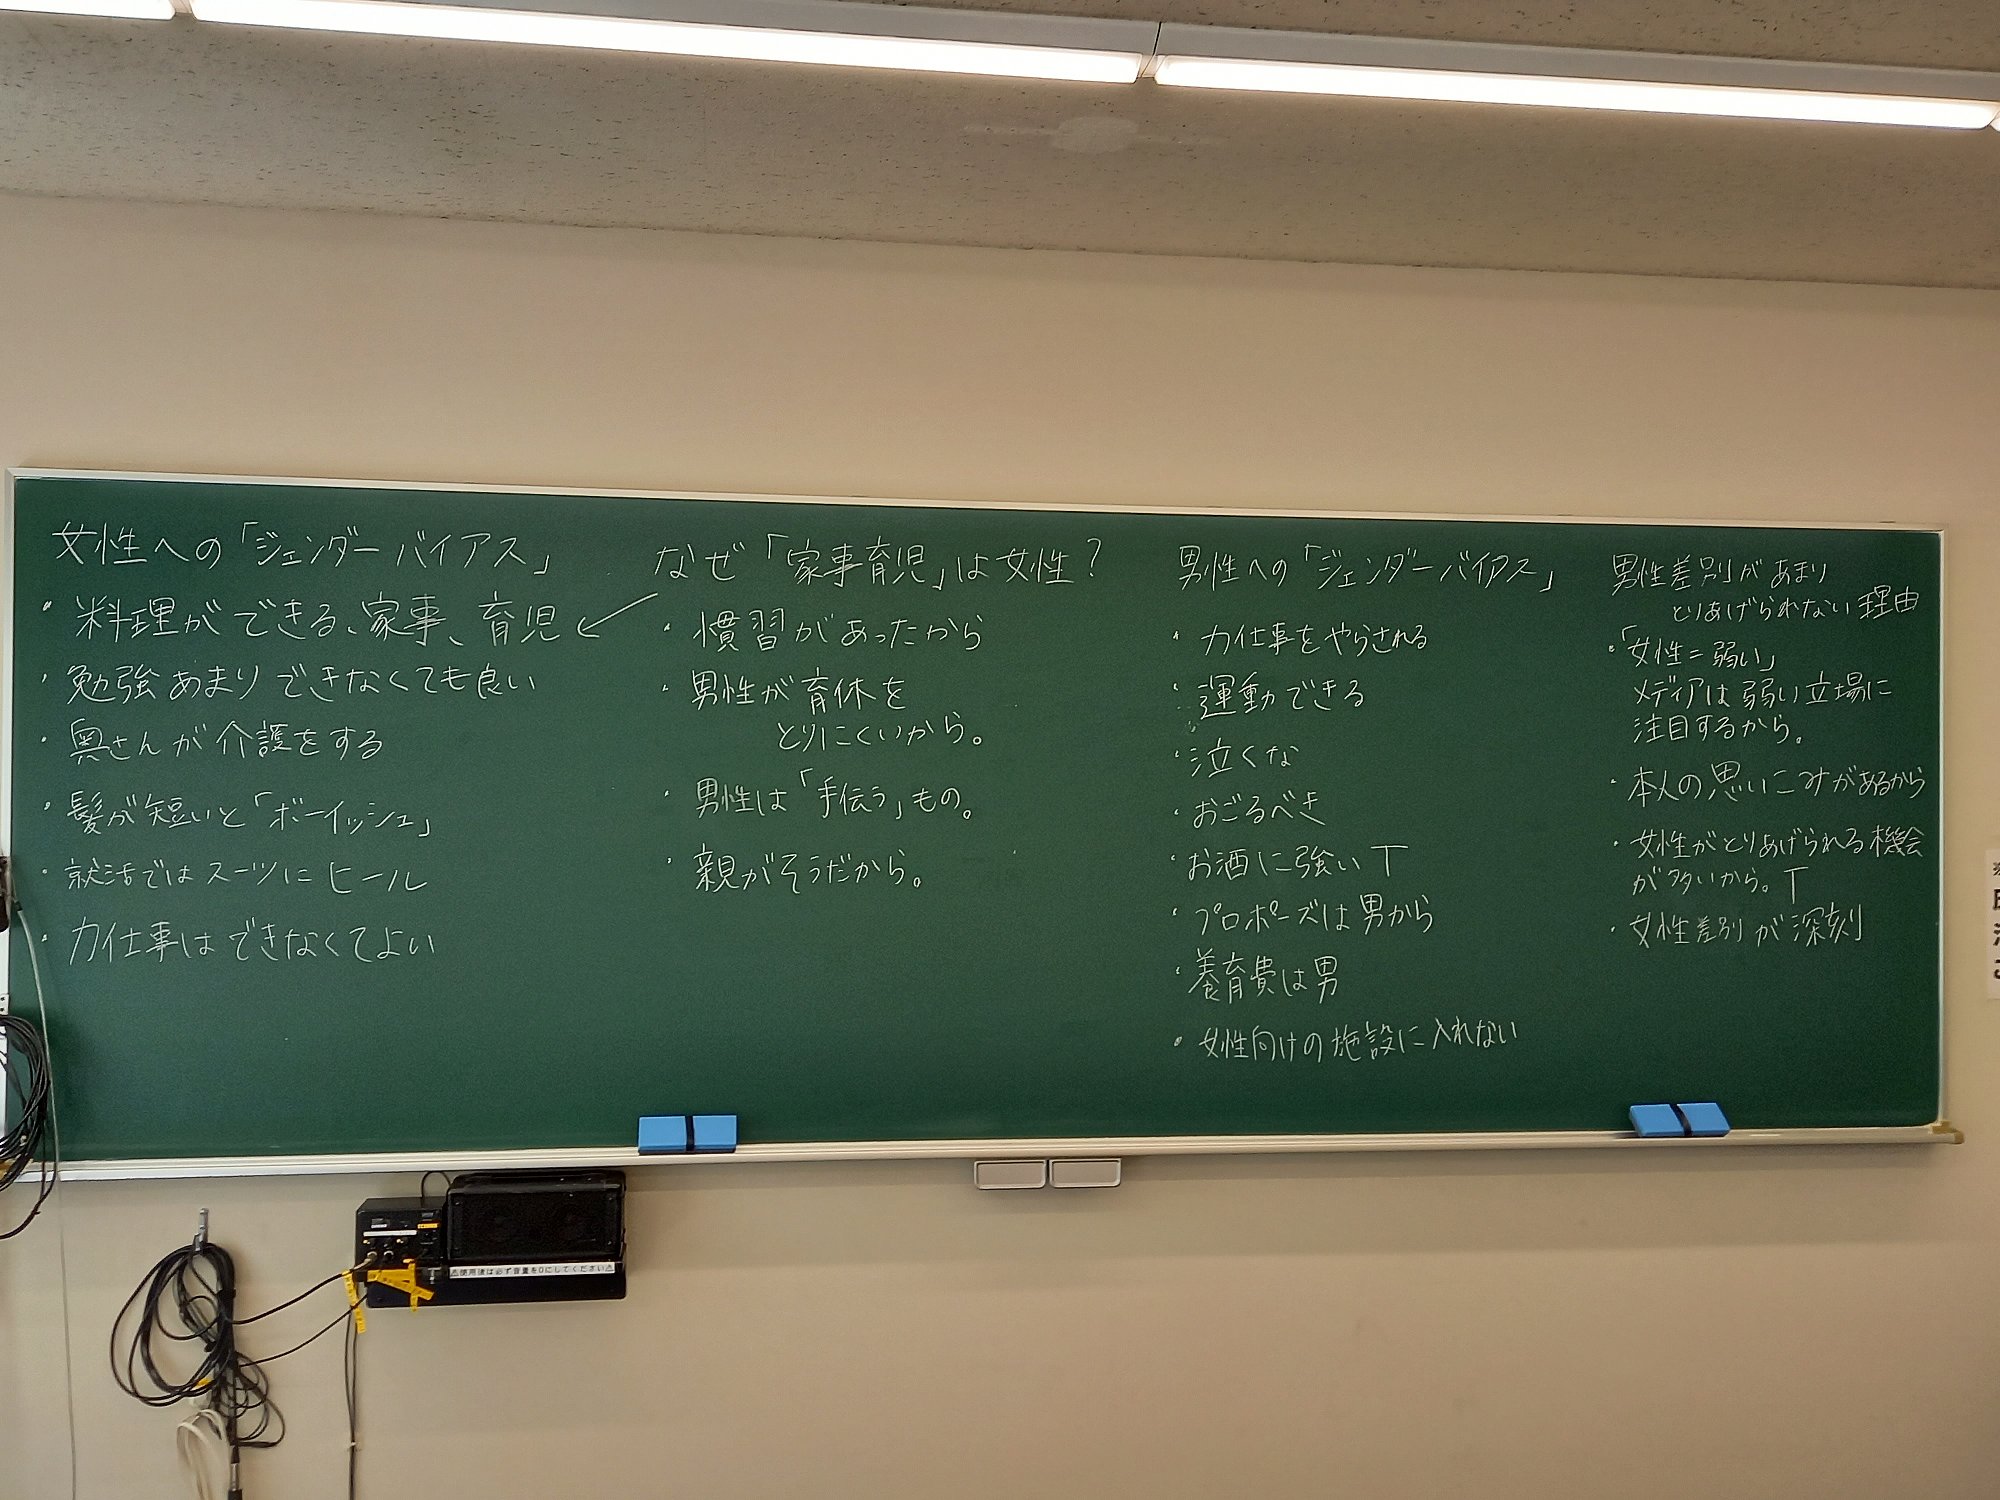 女性への「ジェンダーバイアス」
・料理ができる、家事、育児
・勉強あまりできなくても良い
・奥さんが介護をする
・髪が短いと「ボーイッシュ」
・就活ではスーツにヒール
・力仕事はできなくてよい
なぜ「家事育児」は女性？
・慣習があったから
・男性が育休を
とりにくいから。
・男性は「手伝う」もの。
・親がそうだから。
男性への「ジェンダーバイアス」
・力仕事をやらされる
・運動できる
・泣くな
・おごるべき
・お酒に強い T
・プロポーズは男から
・養育費は男
・女性向けの施設に入れない
男性差別があまり
とりあげられない理由
・「女性＝弱い」
メディアは弱い立場に
注目するから。
・本人の思いこみがあるから
・女性がとりあげられる機会
が多いから。T
・女性差別が深刻
⚠使用後は必ず音量を0にしてください⚠